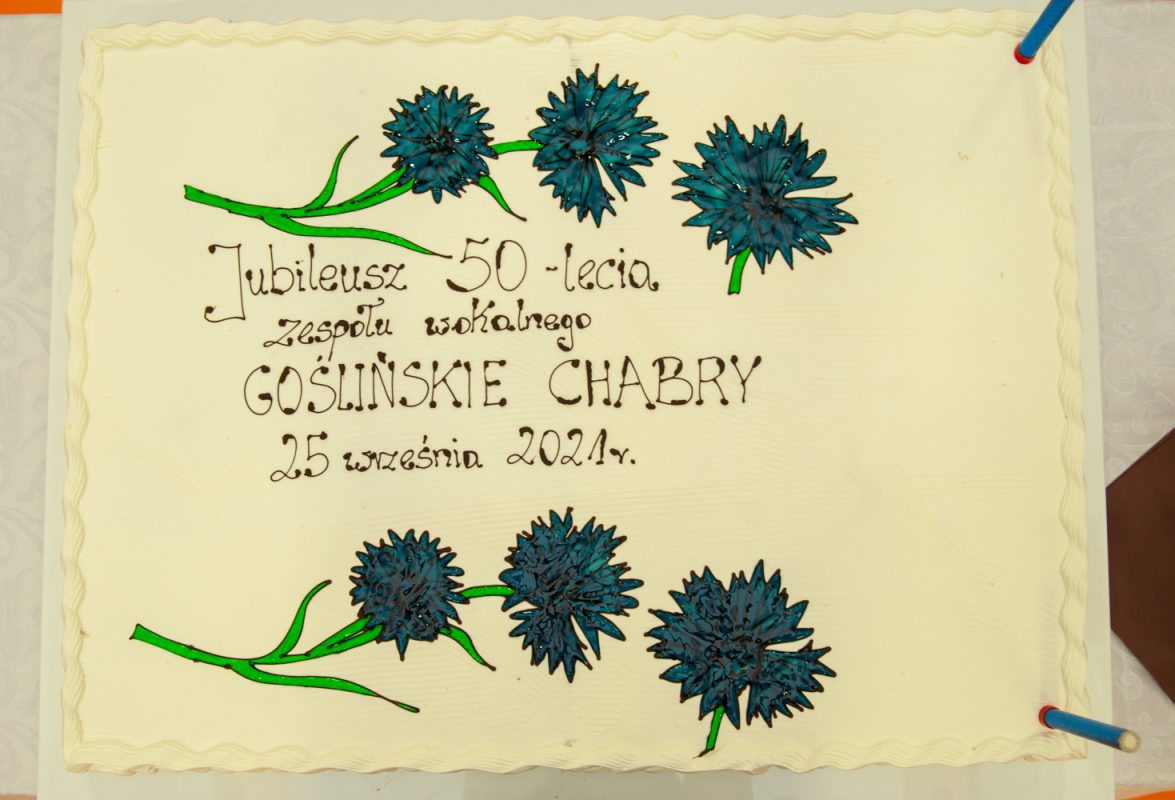 Jubileusz 50-lecia
zespołu wokalnego
GOŚLIŃSKIE CHABRY
25 września 2021r.